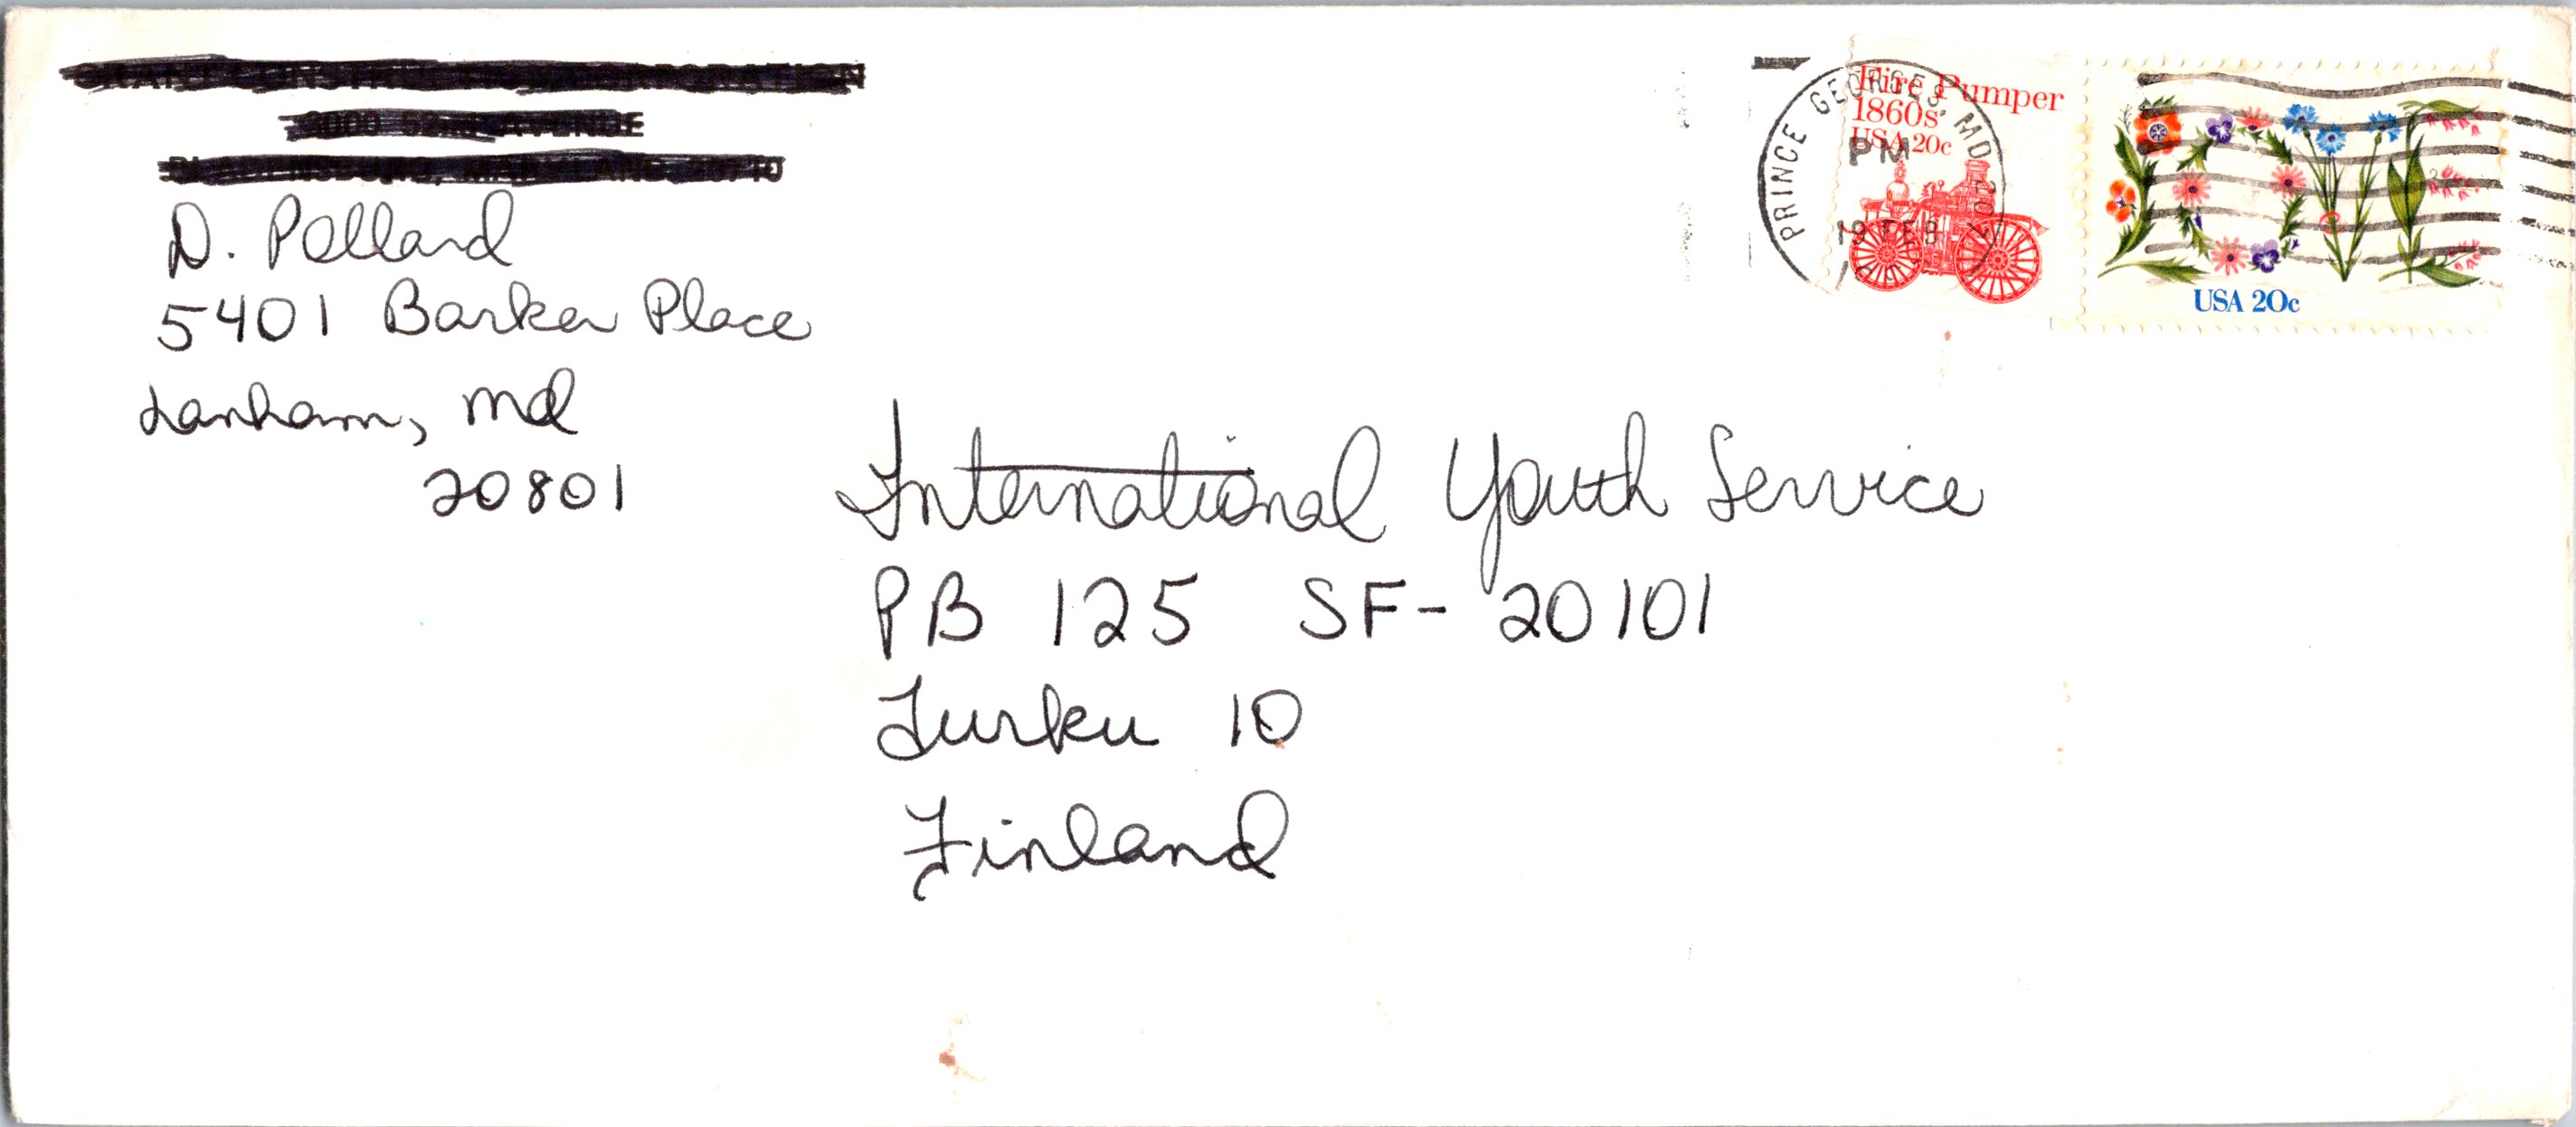 AVENUE
D. Pollard
5401 Barker Place
Lanham, Md
20801
PRINCE GEORGES, MD
PM
19 FEB
Fire Pumper
1860s
USA 20c
USA 20c
International Youth Service
PB 125 SF-20101
Turku 10
Finland